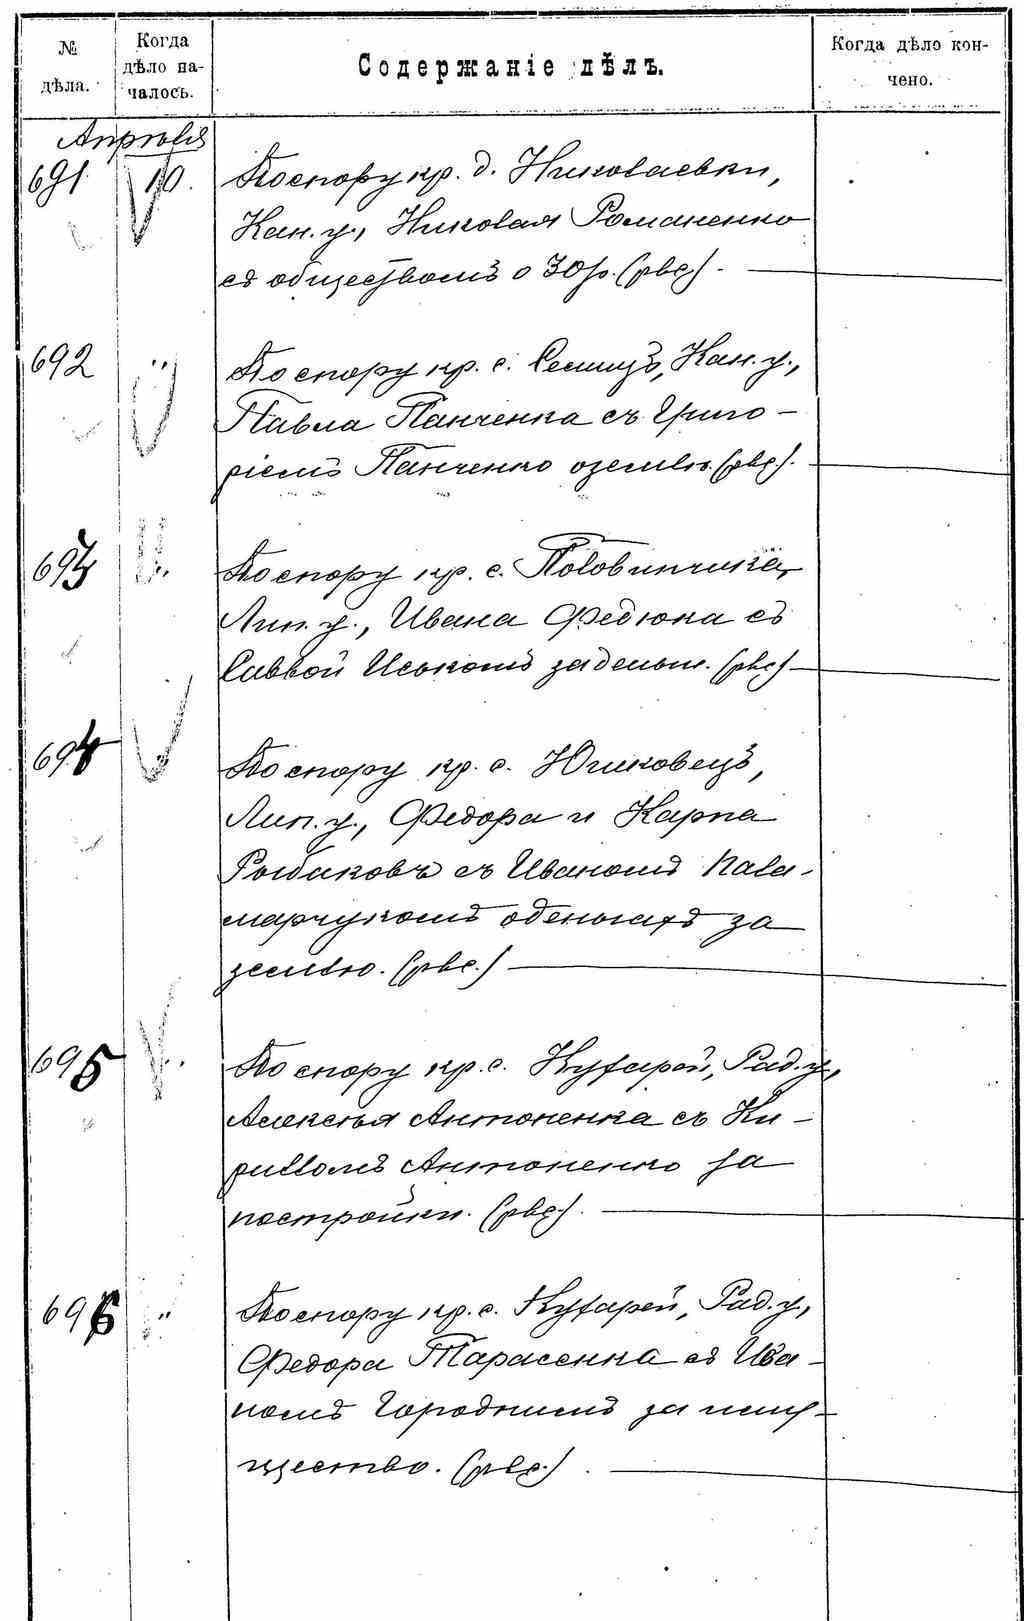 № дѣла.
Когда дѣло на-
чалось.
Содержаніе дѣлъ.
Когда дѣло кон-
чено.
Апрѣля
691 10. По спору кр. д. Николаевки,
Кан. у., Николая Романенко
съ обществомъ о 30 р. (рвс).
692 " По спору кр. с. Семицъ, Кан. у.,
Павла Панченка съ Григо-
ріемъ Панченко о землѣ. (рвс).
693 " По спору кр. с. Половинчика,
Лип. у., Ивана Федюка съ
Саввой Иськомъ за деньги. (рвс)
694 По спору кр. с. Юшковецъ,
Лип. у., Федора и Карпа
Рыбаковъ съ Иваномъ Пала-
марчукомъ о деньгахъ за
землю. (рвс.)
695 " По спору кр. с. Кухарей, Рад. у.,
Алексѣя Антоненка съ Ки-
рилломъ Антоненко за
постройки. (рвс).
696 " По спору кр. с. Кухарей, Рад. у.,
Федора Тарасенка съ Ива-
номъ Городнимъ за иму-
щество. (рвс.)